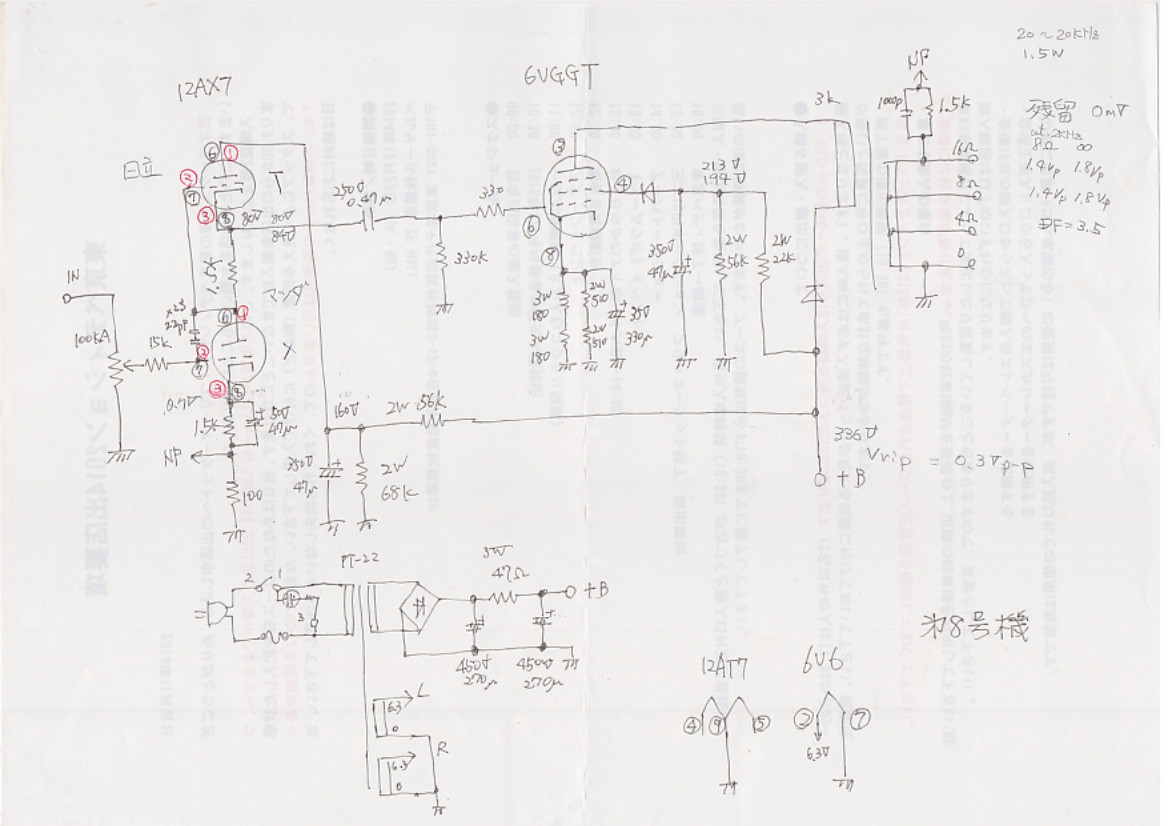 20~20KHz
1.5W
12AX7
6VGGT
NF
1000p
1.5K
3k
残留 0mV
at.2KHz
8Ω ∞
1.4Vp 1.8Vp
1.4Vp 1.8Vp
DF=3.5
16Ω
8Ω
4Ω
0
⑥
①
日立
②
⑦
T
③
⑧
80V 80V
84V
250V
0.47μ
330
③
④
⑥
⑧
213V
194V
330K
350V
47μ
2W
56K
2W
22K
1.5K
マツダ
3W
180
3W
180
2W
510
2W
510
35V
330μ
IN
100KA
15K
22pP
⑥
①
②
⑦
X
③
⑧
0.7V
1.5K
50V
47μ
NP
100
160V
2W 56K
350V
47μ
2W
68K
336V
+B
Vrip = 0.3Vp-p
PT-22
2
1
3
3W
47Ω
+B
450V
270μ
450V
270μ
6.3
0
L
6.3
0
R
12AT7
④
⑨
⑤
6V6
②
⑦
6.3V
第8号機